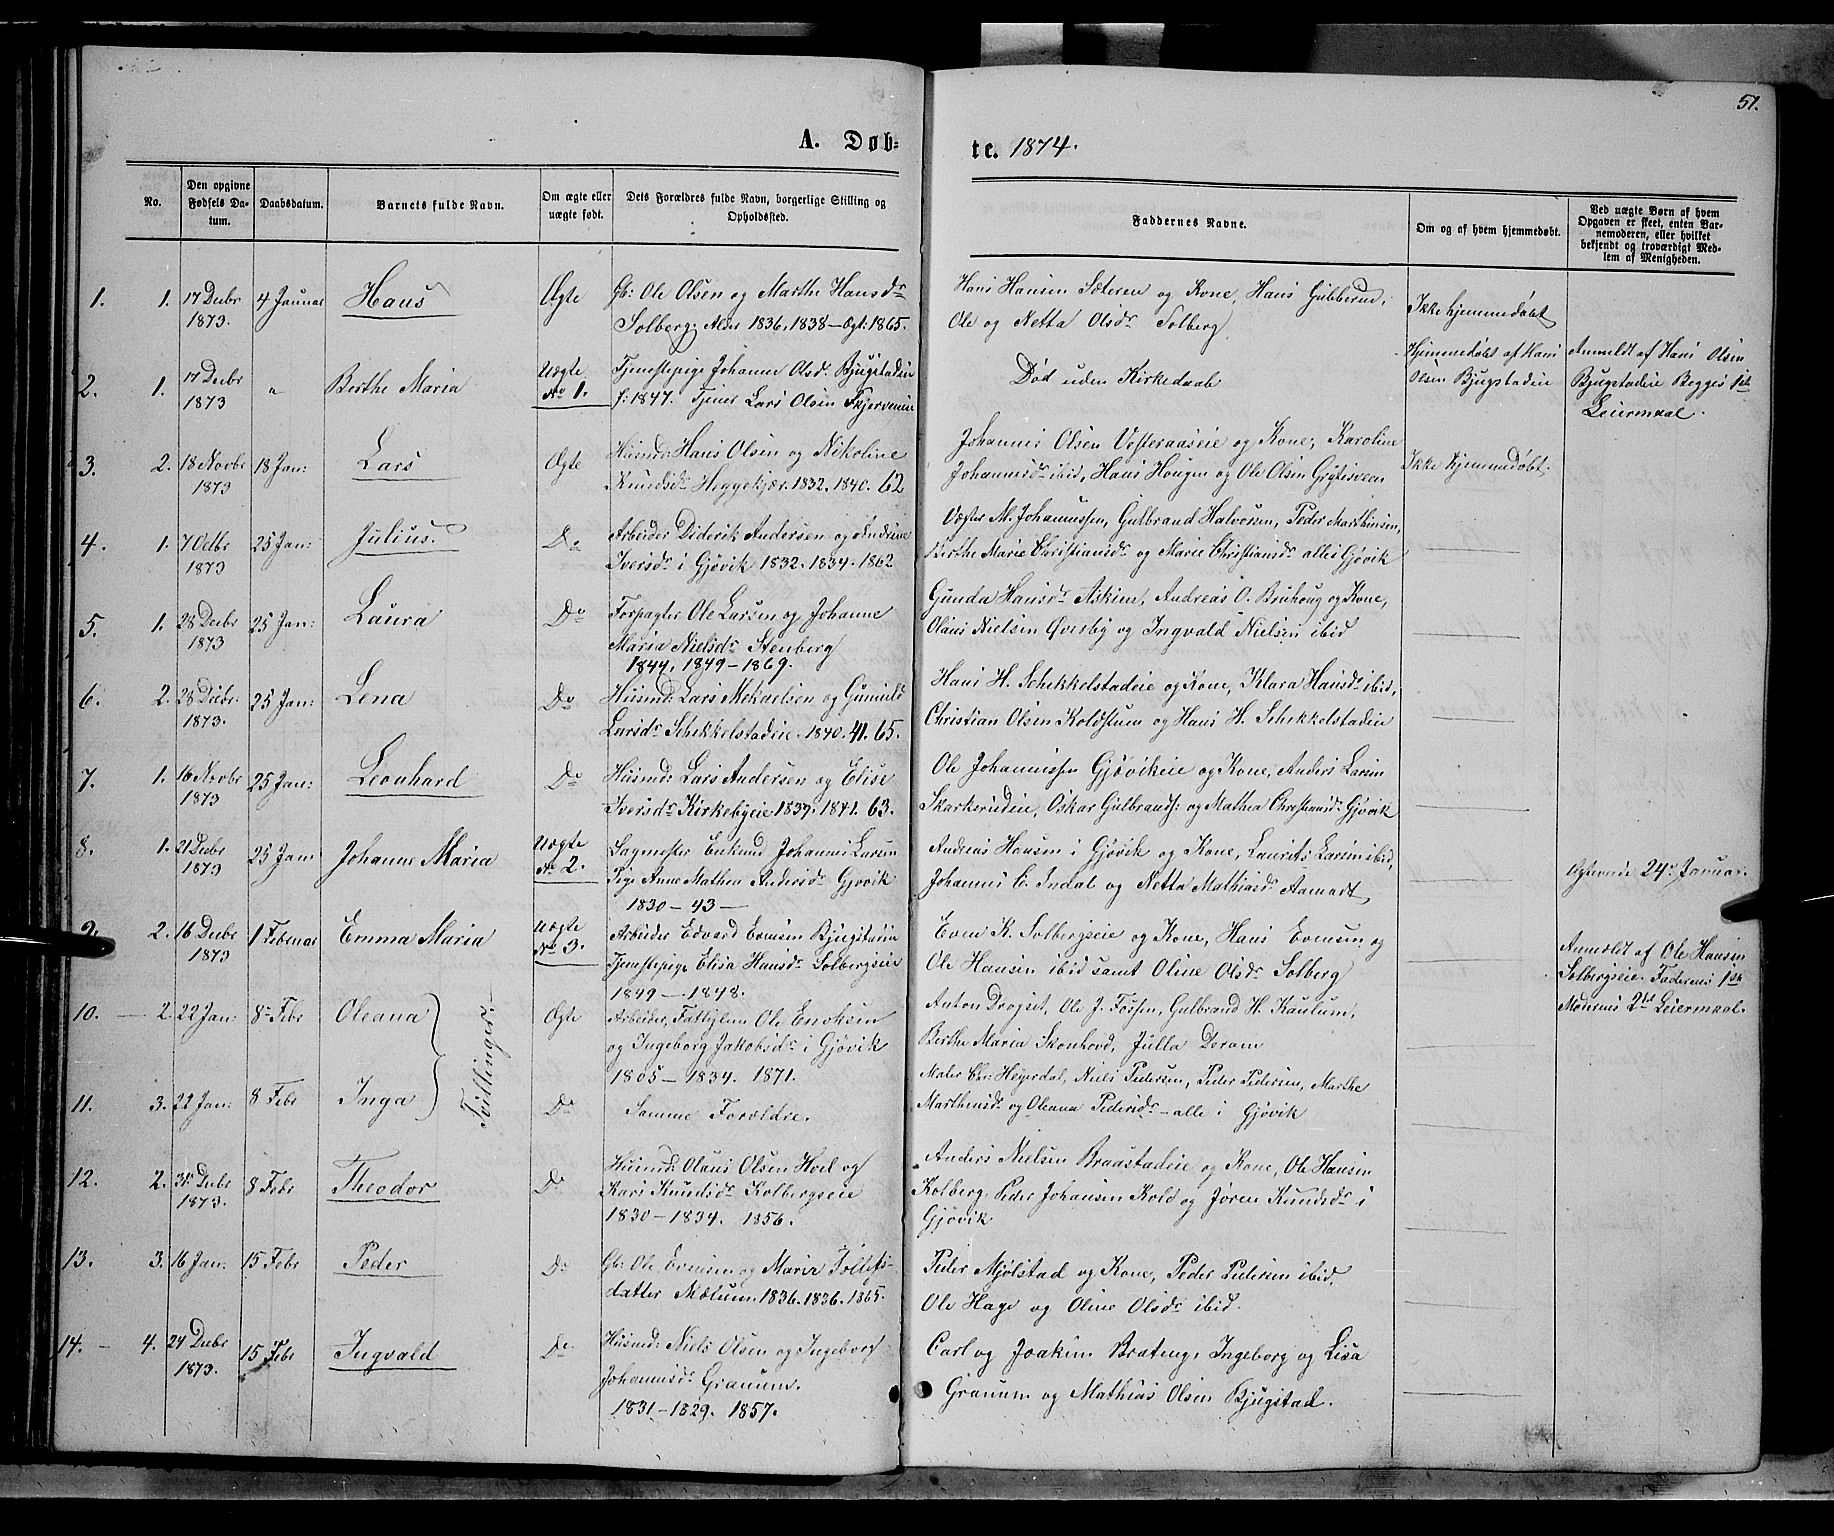 51.
A. Døb-
te. 1874.
No.
Den opgivne Fødsels Da-
tum.
Daabsdatum.
Barnets fulde Navn.
Om ægte eller
uægte født.
Dets Forældres fulde Navn, borgerlige Stilling og
Opholdssted.
Faddernes Navne.
Om og af hvem hjemmedøbt.
Ved uægte Børn af hvem
Opgaven er skeet, enten Bar-
nemoderen, eller hvilket
bekjendt og troværdigt Med-
lem af Menigheden.
1. 1. 17 Decbr 1873. 4 Januar Hans Ægte
Gb: Ole Olsen og Marthe Hansdr
Solberg. Alder 1836, 1838 – Ægt: 1865.
Hans Hansen Sæteren og Kone, Hans Gubberud,
Ole og Netta Olsdr Solberg
Ikke hjemmedøbt
2. 1. 17 Decbr 1873 " Berthe Maria Uægte No 1.
Tjenestepige Johanne Olsdr Bjugstadeie
f: 1847. Tjener Lars Olsen Skjerveneie
Død uden Kirkedaab
Hjemmedøbt af Hans
Olsen Bjugstadeie
Anmeldt af Hans Olsen
Bjugstadeie Begges 1ste
Leiermaal.
3. 2. 18 Novbr 1873 18 Jan: Lars Ægte
Husmd: Hans Olsen og Nikoline
Knudsdr Heggekjær. 1832. 1840. 62
Johannes Olsen Vesteraaseie og Kone, Karoline
Johannisdr ibid, Hans Hougen og Ole Olsen Grytesveen
Ikke hjemmedøbt.
4. 1. 7 Octbr 1873 25 Jan: Julius. Do
Arbeider Diderik Andersen og Andrine
Iversdr i Gjøvik 1832. 1834. 1862
Vægter M. Johannessen, Gulbrand Halvorsen, Peder Marthinsen,
Berthe Marie Christiansdr og Marie Christiansdr alle i Gjøvik
5. 1. 28 Decbr 1873 25 Jan: Laura Do
Forpagter Ole Larsen og Johanne
Maria Nielsdr Stenberg
1844, 1849 – 1869.
Gunda Hansdr Askim, Andreas O. Bruhoug og Kone,
Olaus Nielsen Øversby og Ingvald Nielsen ibid
6. 2. 28 Decbr. 1873. 25 Jan: Lena Do
Husmd: Lars Mekaelsen og Gunild
Larsdr Schikkelstadeie. 1840. 41. 65.
Hans H. Schikkelstadeie og Kone, Klara Hansdr ibid,
Christian Olsen Koldstum og Hans H. Schikkelstadeie
7. 1. 16 Novbr 1873 25 Jan: Leonhard Do
Husmd: Lars Andersen og Elise
Iversdr Kirkebyeie 1839. 1841. 63.
Ole Johannessen Gjøvikeie og Kone, Anders Larsen
Skarkerudeie, Oskar Gulbrands: og Mathea Christiansdr Gjøvik
8. 1. 21 Decbr 1873 25 Jan Johanne Maria Uægte No 2.
Sagmester Enkemd Johannes Larsen
Pige Anne Mathea Andersdr Gjøvik
1830 – 43 –
Andreas Hansen i Gjøvik og Kone, Laurits Larsen ibid,
Johannes E. Indal og Netta Mathiasdr Aamodt
Ægteviede 24de Januar.
9. 2. 16 Decbr 1873 1 Februar Emma Maria Uægte No 3.
Arbeider Edvard Evensen Bjugstadeie
Tjenestepige Elisa Hansdr Solbergseie
1849 – 1848.
Even K. Solbergseie og Kone, Hans Evensen og
Ole Hansen ibid samt Oline Olsdr Solberg
Anmeldt af Ole Hansen
Solbergseie. Faderens 1ste
Moderens 2det Leiermaal.
10. – 2. 22 Jan: 8de Febr Oleana Tvillinger. Ægte
Arbeider, Fattiglem Ole Enoksen
og Ingeborg Jakobsdr i Gjøvik
1805 – 1834. 1871.
Anton Drogset, Ole J. Fossen, Gulbrand H. Kaulum,
Berthe Maria Skonhovd, Julla Deram
11. 3. 22 Jan: 8 Febr Inga Do
Samme Forældre.
Maler Chr: Heyerdal, Niels Pedersen, Peder Pedersen, Marthe
Marthensdr og Oleana Pedersdr – alle i Gjøvik
12. 2. 31 Decbr 1873. 8 Febr Theodor Do
Husmd: Olaus Olsen Hvil og
Kari Knudsdr Kolbergseie
1830 – 1834. 1856.
Anders Nielsen Braastadeie og Kone, Ole Hansen
Kolberg, Peder Johansen Kold og Jøren Knudsdr i
Gjøvik
13. 3. 16 Jan: 15 Febr Peder Do
Gb: Ole Evensen og Marie Tollefs-
datter Mælum. 1836. 1836. 1865.
Peder Mjølstad og Kone, Peder Pedersen ibid,
Ole Hage og Oline Olsdr ibid.
14. – 4. 24 Decbr 1873. 15 Febr Ingvald Do
Husmd: Niels Olsen og Ingeborg
Johannesdr Granum.
1831 – 1829. 1857.
Carl og Joakim Brateng, Ingeborg og Lisa
Granum og Mathias Olsen Bjugstad.